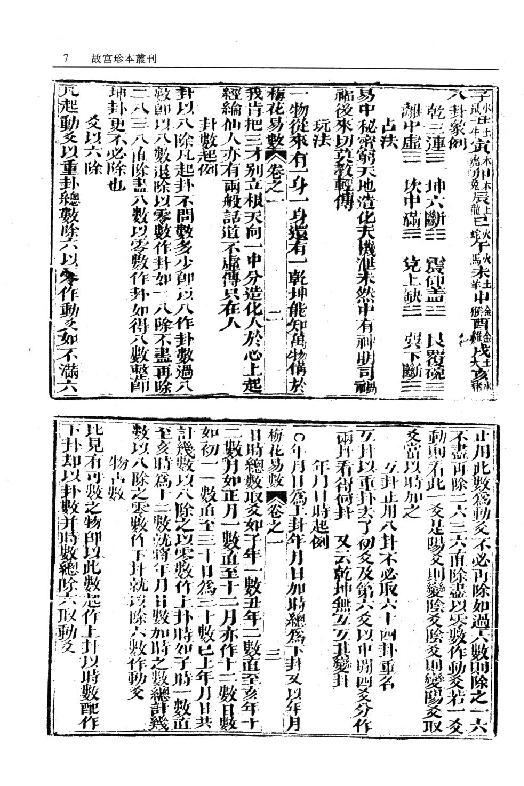 7 故宫珍本叢刊
子水鼠丑土牛寅木虎卯木兔辰土龍巳火蛇午火馬未土羊申金猴酉金雞戌土犬亥水豬
八卦象例
乾三連☰ 坤六斷☷ 震仰盂☳ 艮覆碗☶
離中虛☲ 坎中滿☵ 兌上缺☱ 巽下斷☴
占法
易中秘密窮天地造化天機泄未然中有神明司禍
福後來切莫教輕傳
玩法
一物從來有一身一身還有一乾坤能知萬物備於
梅花易數 卷之一 二
我肯把三才別立根天向一中分造化人於心上起
經綸仙人亦有兩般話道不虛傳只在人
卦數起例
卦以八除凡起卦不問數多少卽以八作卦數過八
數卽以八數退除以零數作卦如一八除不盡再除
二八三八直除盡八數以零數作卦如得八數整卽
坤卦更不必除也
爻以六除
凡起動爻以重卦總數除六以零作動爻如不滿六
止用此數爲動爻不必再除如過六數則除之一六
不盡再除二六三六直除盡以零數作動爻若一爻
動則看此一爻是陽爻則變陰爻陰爻則變陽爻取
爻當以時加之
互卦止用八卦不必取六十四卦重名
互卦以重卦去了初爻及第六爻以中間四爻分作
兩卦看得何卦 又云乾坤無互互其變卦
年月日時起例
年月日爲上卦年月日加時總爲下卦又以年月
梅花易數 卷之一 三
日時總數取爻如子年一數丑年二數直至亥年十
二數月如正月一數直至十二月亦作十二數日數
如初一一數直至三十日爲三十數已上年月日共
計幾數以八除之以零數作上卦時如子時一數直
至亥時爲十二數就將年月日數加時之數總計幾
數以八除之零數作下卦就以除六數作動爻
物占數
凡見有可數之物卽以此數起作上卦以時數配作
下卦却以卦數并時數總除六取動爻